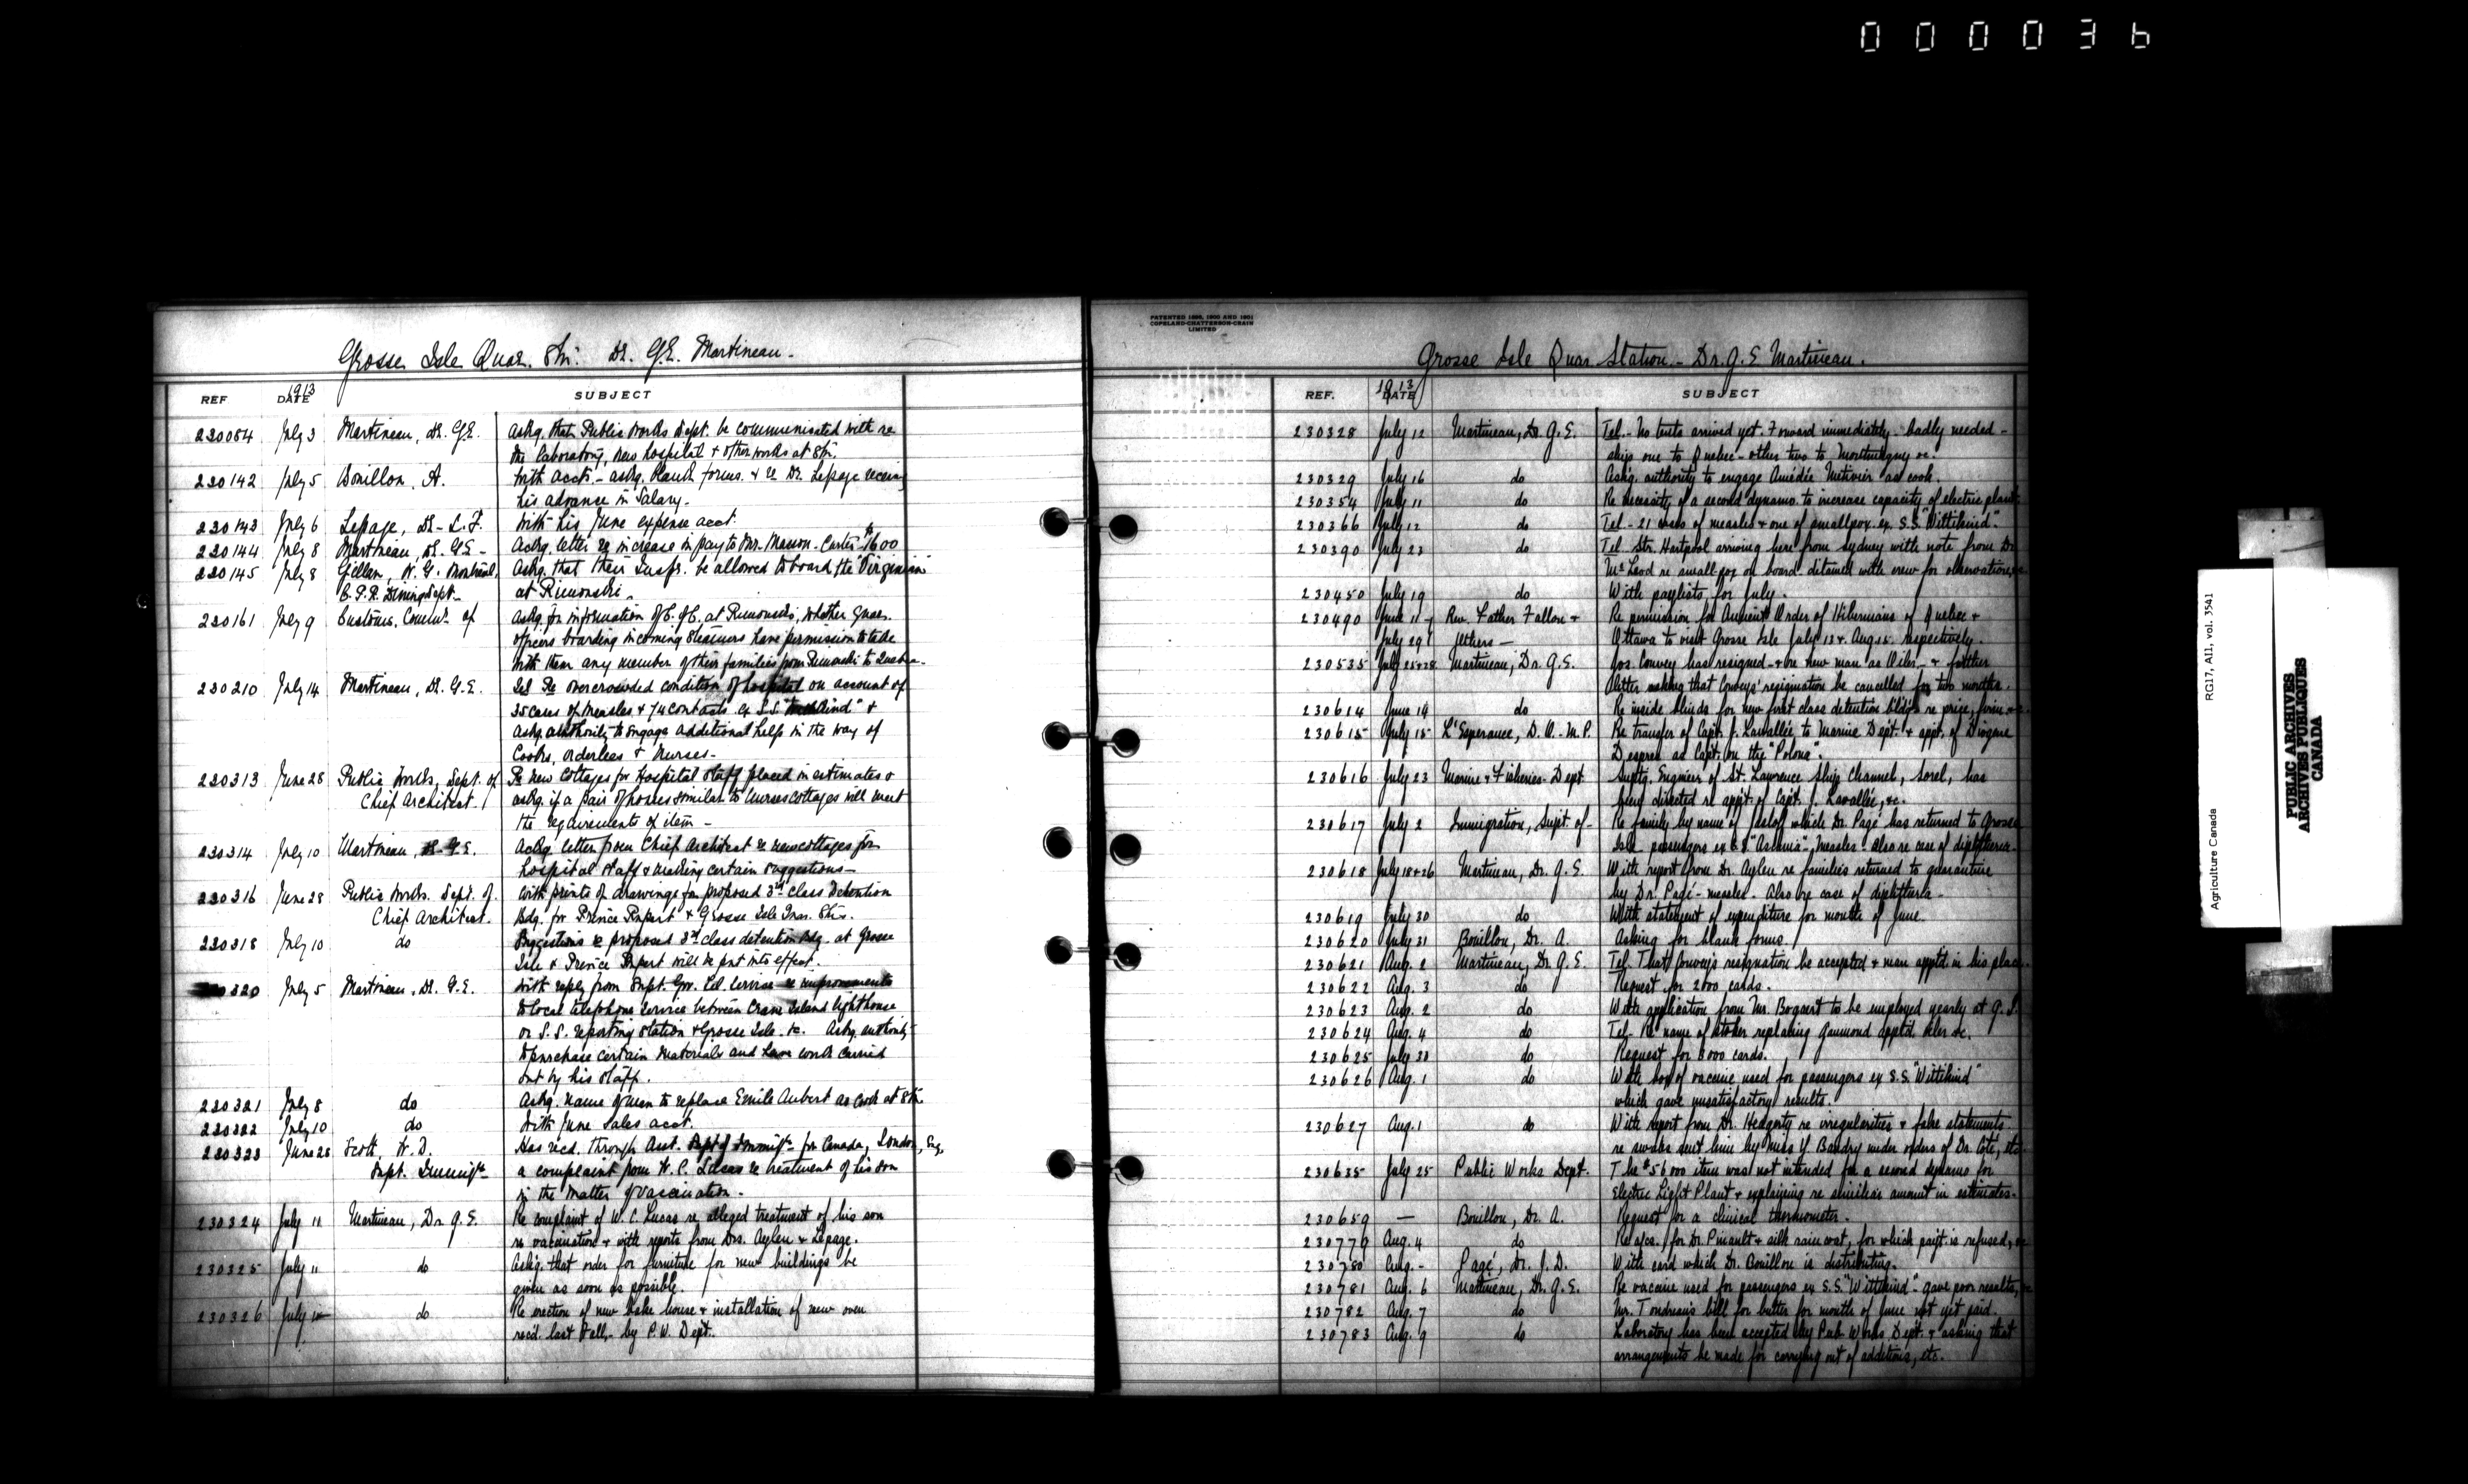 000036
Grosse Isle Quar. Stn. Dr. G.E. Martineau.
REF DATE 1913 SUBJECT
230084 July 3 Martineau, Dr. G.E. Askg. that Public Works Dept. be communicated with re
the laboratory, new hospital & other works at Stn.
230142 July 5 Bouillon, A. With accts. - askg. blank forms. & re Dr. Lepage receivg
his advance in Salary.
230143 July 6 Lepage, Dr. L.F. With his June expense acct.
230144 July 8 Martineau, Dr. G.E. Ackg. letter re increase in pay to Mr. Masson-Carter $1600
230145 July 8 Gillan, W.G. Montreal, Askg. that their Insprs. be allowed to board the "Virginian"
C.P.R. Dining Dept. at Rimouski.
230161 July 9 Customs, Commr. of Askg. for information of C. of C. at Rimouski, whether Quar.
officers boarding incoming steamers have permission to take
with them any member of their families from Rimouski to Quebec.
230210 July 14 Martineau, Dr. G.E. Tel. Re overcrowded condition of hospital on account of
35 cases of measles & 74 contacts ex S.S. "Wittekind" &
askg. authority to engage additional help in the way of
Cooks, orderlees & Nurses.
230313 June 28 Public Works, Dept. of Re new Cottages for Hospital staff placed in estimates &
Chief Architect. askg. if a pair of houses similar to Nurses cottages will meet
the requirements of item -
230314 July 10 Martineau, Dr. G.E. Ackg. letter from Chief Architect re new cottages for
hospital staff & making certain suggestions -
230316 June 28 Public Works. Dept. of. With prints of drawings for proposed 3rd class Detention
Chief Architect. Bdg. for Prince Rupert & Grosse Isle Quar. Stns.
230318 July 10 do Suggestions re proposed 3rd class detention Bdg. at Grosse
Isle & Prince Rupert will be put into effect.
320 July 5 Martineau, Dr. G.E. With reply from Supt. Gov. Tel. Service re improvements
to local telephone service between Crane Island lighthouse
or S.S. reporting station & Grosse Isle. &c. Askg. authority
to purchase certain materials and have work carried
out by his staff.
230321 July 8 do Askg. name of man to replace Emile Aubert as Cook at Stn.
230322 July 10 do With June Sales acct.
230323 June 28 Scott, W.D. Has recd. through Asst. Supt. of Immigtn. for Canada, London, Eng.
Supt. Immigtn. a complaint from W.C. Lucas re treatment of his son
in the matter of vaccination.
230324 July 11 Martineau, Dr. G.E. Re complaint of W.C. Lucas re alleged treatment of his son
re vaccination & with reports from Drs. Aylen & Lepage.
230325 July 11 do Askg. that order for furniture for new buildings be
given as soon as possible.
230326 July 10 do Re erection of new bake house & installation of new oven
rec'd last Fall, by P.W. Dept.
PATENTED 1898, 1900 AND 1901
COPELAND-CHATTERSON-CRAIN
LIMITED
Grosse Isle Quar. Station - Dr. G.E. Martineau.
REF. DATE 1913 SUBJECT
230328 July 12 Martineau, Dr. G.E. Tel. - No tents arrived yet. Forward immediately - badly needed -
ship one to Quebec - other two to Montmagny &c.
230329 July 16 do Ask'g. authority to engage Amédée Métivier as cook.
230354 July 11 do Re necessity of a second dynamo to increase capacity of electric plant.
230366 July 12 do Tel. - 21 cases of measles & one of smallpox ex S.S. "Wittekind".
230390 July 23 do Tel. Str. Hartpool arriving here from Sydney with note from Dr.
McLeod re small-pox on board - detained with crew for observation, &c.
230450 July 19 do With paylists for July.
230490 June 11 - Rev. Father Fallon & Re permission for Ancient Order of Hibernians of Quebec &
July 29 Others - Ottawa to visit Grosse Isle July 13 & Aug 15 respectively.
230535 July 25 & 28 Martineau, Dr. G.E. Jos. Convey has resigned - & re new man as Oiler - & further
letter asking that Convey's resignation be cancelled for two months.
230614 June 19 do Re inside blinds for new first class detention bldg. re price, firm &c.
230615 July 15 L'Esperance, D.O. - M.P. Re transfer of Capt. J. Lavallée to Marine Dept. & appt. of Diogène
Despres as Capt. on the "Polana".
230616 July 23 Marine & Fisheries Dept. Suptg. Engineer of St. Lawrence Ship Channel, Sorel, has
been directed re appt. of Capt. J. Lavallée, &c.
230617 July 2 Immigration, Supt. of - Re family by name of which Dr. Pagé has returned to Grosse
Isle passengers ex S.S. "Ascania" - measles. Also re case of diphtheria.
230618 July 18 & 26 Martineau, Dr. G.E. With report from Dr. Aylen re families returned to quarantine
by Dr. Pagé - measles. Also re case of diphtheria -
230619 July 30 do With statement of expenditure for month of June.
230620 July 31 Bouillon, Dr. A. Asking for blank forms.
230621 Aug. 2 Martineau, Dr. G.E. Tel. That Convey's resignation be accepted & man apptd. in his place.
230622 Aug. 3 do Request for 2000 cards.
230623 Aug. 2 do With application from Mr. Bogaert to be employed yearly at G.I.
230624 Aug. 4 do Tel. Re name of stoker replacing Gaumond apptd. oiler &c.
230625 July 30 do Request for 3000 cards.
230626 Aug. 1 do With box of vaccine used for passengers ex S.S. "Wittekind"
which gave unsatisfactory results.
230627 Aug. 1 do With report from Dr. Hedgerty re irregularities & false statements
re swabs sent him by Miss Y. Baudry under orders of Dr. Coté, etc.
230635 July 25 Public Works Dept. The $56000 item was not intended for a second dynamo for
Electric Light Plant & explaining re similar amount in estimates.
230659 — Bouillon, Dr. A. Request for a clinical thermometer.
230779 Aug. 4 do Re a/cs. for Dr. Pineault & silk raincoat, for which paym't is refused, &c
230780 Aug. - Pagé, Dr. J.D. With card which Dr. Bouillon is distributing.
230781 Aug. 6 Martineau, Dr. G.E. Re vaccine used for passengers ex S.S. "Wittekind" - gave poor results, &c
230782 Aug. 7 do Mr. Tondreau's bill for butter for month of June not yet paid.
230783 Aug. 9 do Laboratory has been accepted by Pub. Works Dept. & asking that
arrangements be made for carrying out of additions, etc.
Agriculture Canada RG17, AII, vol. 3541
PUBLIC ARCHIVES
ARCHIVES PUBLIQUES
CANADA